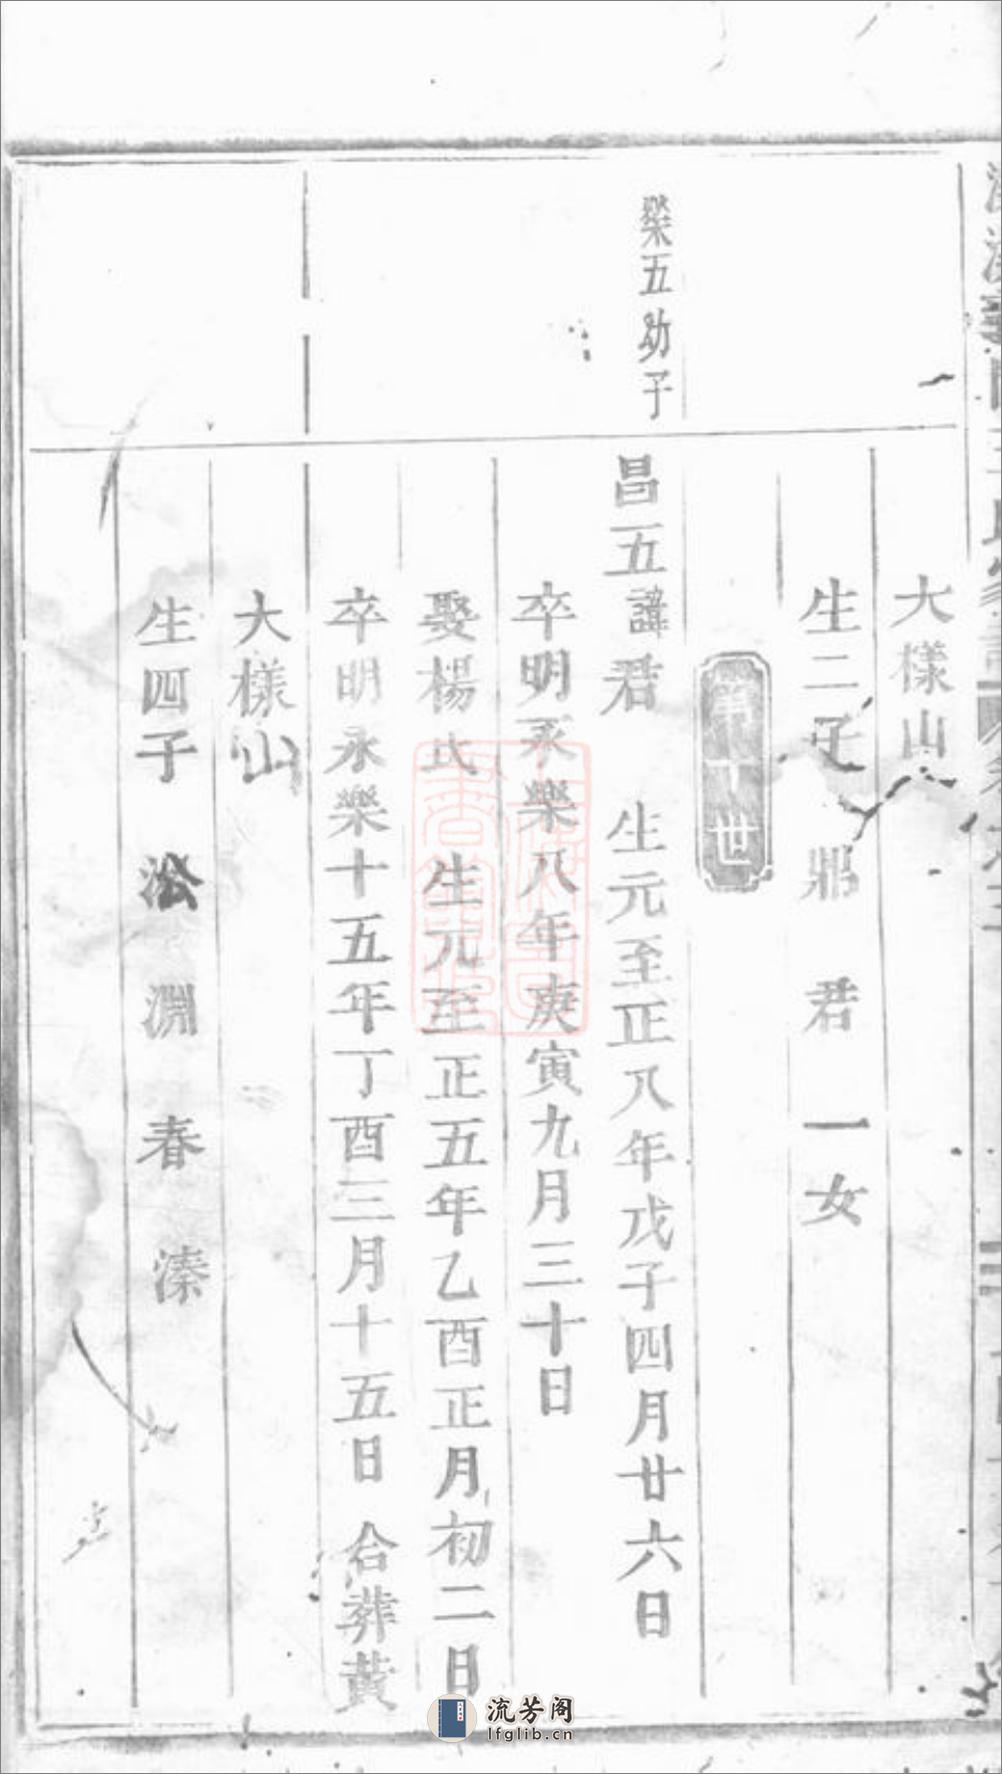 大樣山
生二子 鄢 君 一女
第十世
榮五幼子
昌五諱君 生元至正八年戊子四月廿六日
卒明永樂八年庚寅九月三十日
娶楊氏 生元至正五年乙酉正月初二日
卒明永樂十五年丁酉三月十五日 合葬黃
大樣山
生四子 淞 淵 春 溱
流芳阁
lfglib.cn